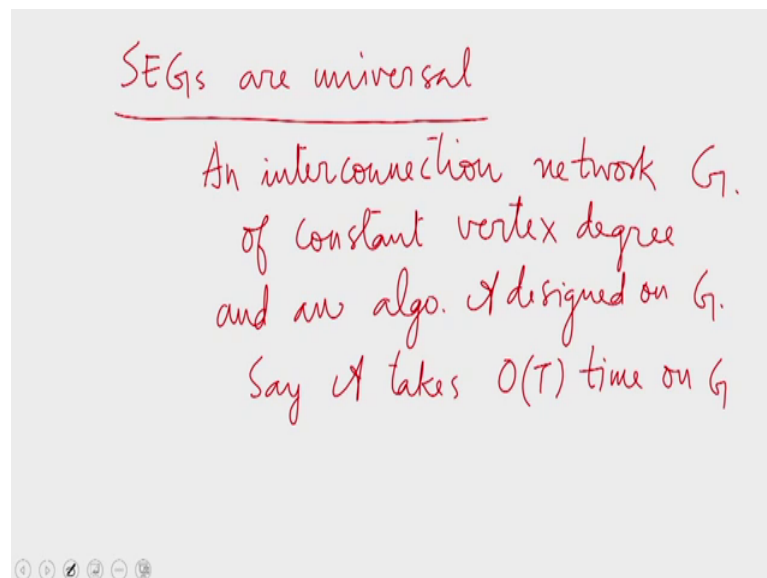 SEGs are universal
An interconnection network G.
of constant vertex degree
and an algo. A designed on G.
Say A takes O(T) time on G